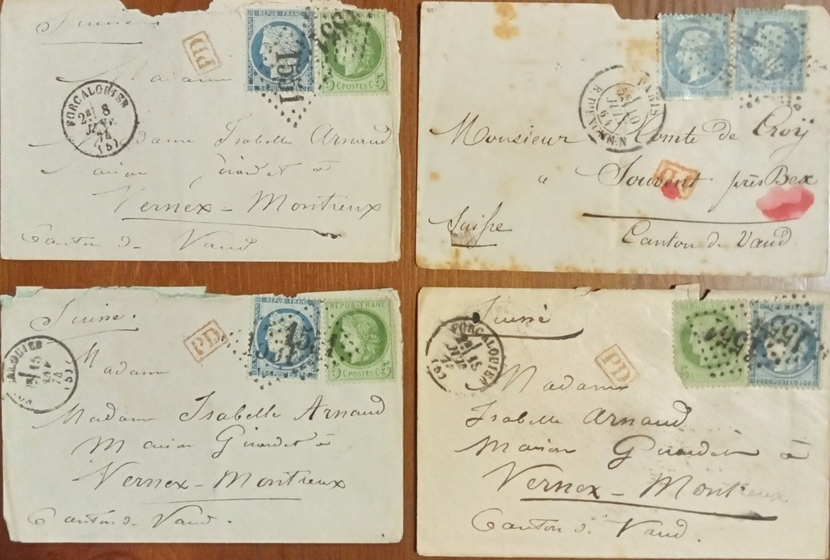 Suisse
PD
REPUB·FRANC
1551
5 C POSTES C 5
FORCALQUIER
8
74
(5)
Madame
Madame Isabelle Arnaud
Maison Girardet à
Vernex-Montreux
Canton de Vaud
PARIS
10
Monsieur Comte de Croÿ
à Souvent près Bex
Suisse
Canton de Vaud.
PD
Suisse.
PD
REPUB·FRANC
5 POSTES 5
15
74
Madame
Madame Isabelle Arnaud
Maison Girardet à
Vernex-Montreux
Canton de Vaud.
Suisse
PD
1551
1551
FORCALQUIER
15
74
Madame
Isabelle Arnaud
Maison Girardet à
Vernex-Montreux
Canton de Vaud.